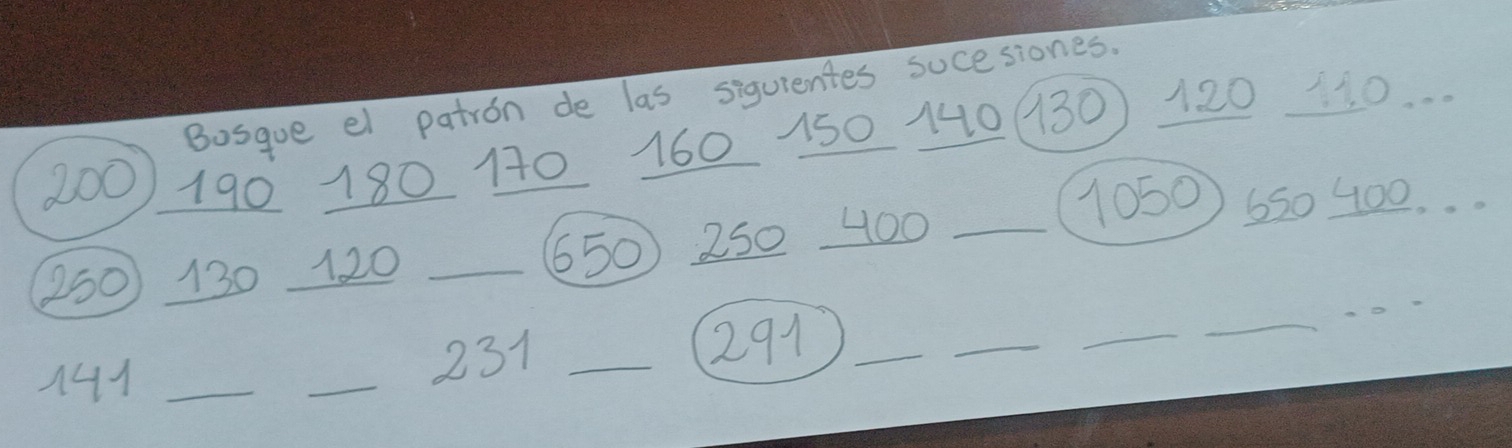 Busque el patrón de las siguientes sucesiones.
200 190 180 170 160 150 140 130 120 110...
250 130 120 __ 650 250 400 __ 1050 650 400...
141 __ __ 231 __ 291 __ __ __ __ ...